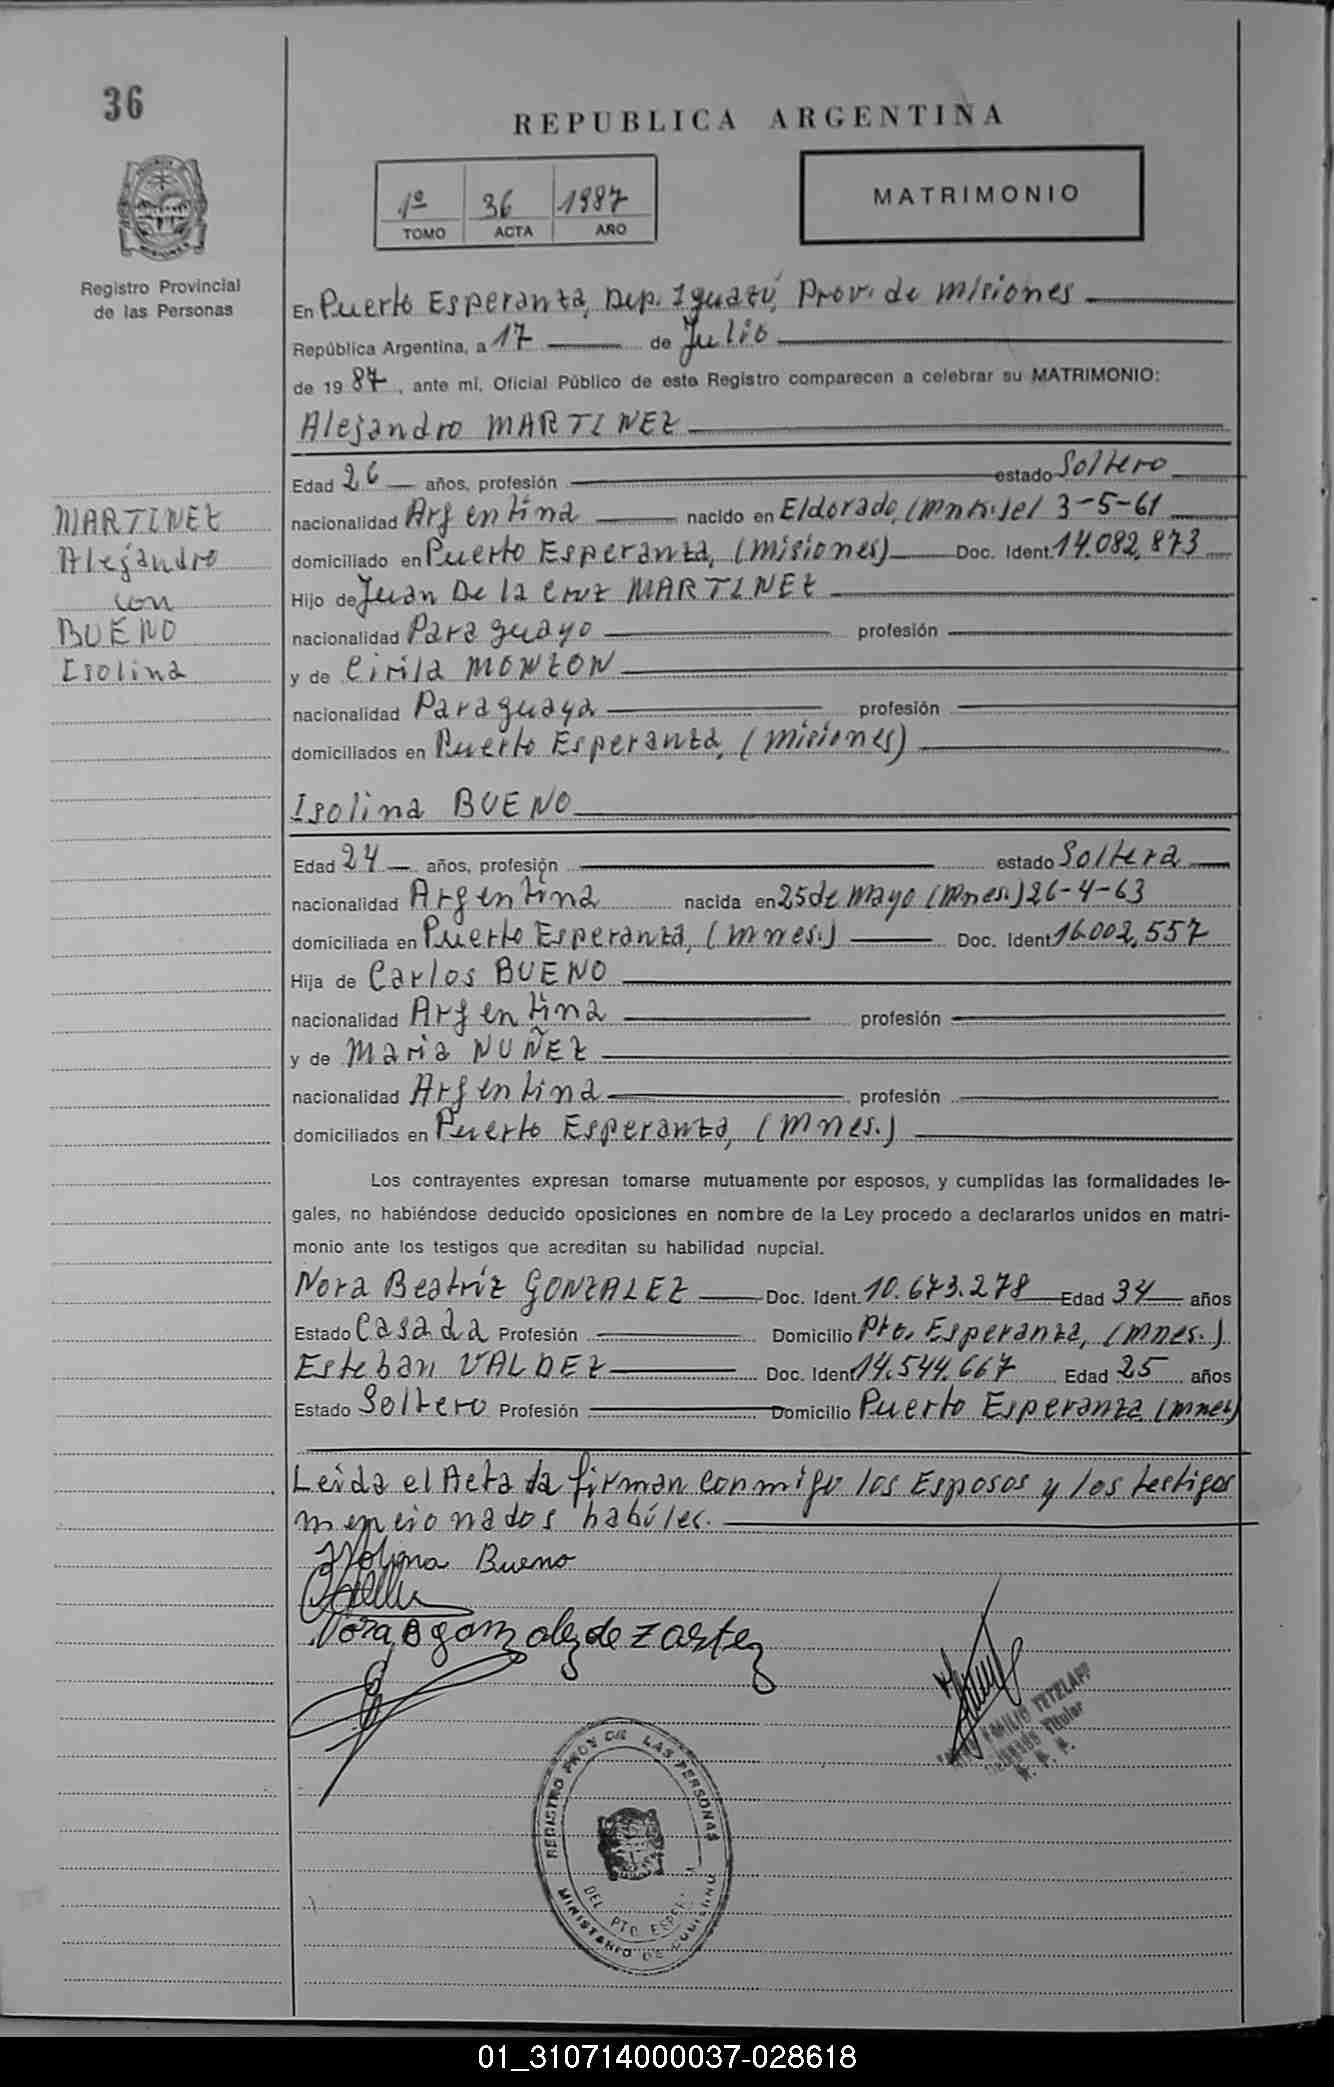 36
REPUBLICA ARGENTINA
1º 36 1987
TOMO ACTA AÑO
MATRIMONIO
Registro Provincial
de las Personas
En Puerto Esperanza, Dep. Iguazú, Prov. de Misiones
República Argentina, a 17 de Julio
de 1987, ante mí, Oficial Público de este Registro comparecen a celebrar su MATRIMONIO:
Alejandro MARTINEZ
Edad 26 años, profesión estado Soltero
nacionalidad Argentina nacido en Eldorado, (Mnes.) el 3-5-61
domiciliado en Puerto Esperanza, (Misiones) Doc. Ident. 14.082.873
Hijo de Juan De la Cruz MARTINEZ
nacionalidad Paraguayo profesión
y de Cirila MONZON
nacionalidad Paraguaya profesión
domiciliados en Puerto Esperanza, (Misiones)
MARTINEZ
Alejandro
con
BUENO
Isolina
Isolina BUENO
Edad 24 años, profesión estado Soltera
nacionalidad Argentina nacida en 25 de Mayo (Mnes.) 26-4-63
domiciliada en Puerto Esperanza, (Mnes.) Doc. Ident. 16.002.557
Hija de Carlos BUENO
nacionalidad Argentina profesión
y de Maria NUÑEZ
nacionalidad Argentina profesión
domiciliados en Puerto Esperanza, (Mnes.)
Los contrayentes expresan tomarse mutuamente por esposos, y cumplidas las formalidades le-
gales, no habiéndose deducido oposiciones en nombre de la Ley procedo a declararlos unidos en matri-
monio ante los testigos que acreditan su habilidad nupcial.
Nora Beatriz GONZALEZ Doc. Ident. 10.673.278 Edad 34 años
Estado Casada Profesión Domicilio Pto. Esperanza, (Mnes.)
Esteban VALDEZ Doc. Ident 14.544.667 Edad 25 años
Estado Soltero Profesión Domicilio Puerto Esperanza (Mnes)
Leida el Acta la firman conmigo los Esposos y los testigos
mencionados habiles.
Isolina Bueno
Nora B gonzalez de Zartez
EMILIO TETZLAFF
Titular
REGISTRO PROV DE LAS PERSONAS
DEL PTO ESPER
MINISTERIO DE GOBIERNO
01_310714000037-028618